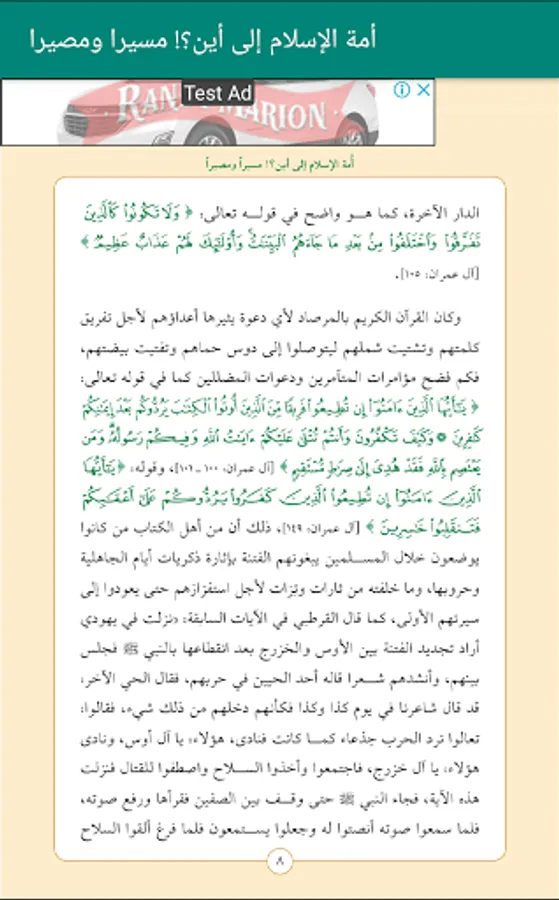 أمة الإسلام إلى أين؟! مسيرا ومصيرا
Test Ad
RAN MARION
أمة الإسلام إلى أين؟! مسيراً ومصيراً
الدار الآخرة، كما هـو واضح في قولـه تعالى: ﴿ وَلَا تَكُونُوا۟ كَٱلَّذِينَ
تَفَرَّقُوا۟ وَٱخْتَلَفُوا۟ مِنۢ بَعْدِ مَا جَآءَهُمُ ٱلْبَيِّنَـٰتُ ۚ وَأُو۟لَـٰٓئِكَ لَهُمْ عَذَابٌ عَظِيمٌ ﴾
[آل عمران: ١٠٥].
وكان القرآن الكريم بالمرصاد لأي دعوة يثيرها أعداؤهم لأجل تفريق
كلمتهم وتشتيت شملهم ليتوصلوا إلى دوس حماهم وتفتيت بيضتهم،
فكم فضح مؤامرات المتآمرين ودعوات المضللين كما في قوله تعالى:
﴿ يَـٰٓأَيُّهَا ٱلَّذِينَ ءَامَنُوٓا۟ إِن تُطِيعُوا۟ فَرِيقًا مِّنَ ٱلَّذِينَ أُوتُوا۟ ٱلْكِتَـٰبَ يَرُدُّوكُم بَعْدَ إِيمَـٰنِكُمْ
كَـٰفِرِينَ ۞ وَكَيْفَ تَكْفُرُونَ وَأَنتُمْ تُتْلَىٰ عَلَيْكُمْ ءَايَـٰتُ ٱللَّهِ وَفِيكُمْ رَسُولُهُۥ ۗ وَمَن
يَعْتَصِم بِٱللَّهِ فَقَدْ هُدِىَ إِلَىٰ صِرَٰطٍ مُّسْتَقِيمٍ ﴾ [آل عمران: ١٠٠ ـ ١٠١]، وقوله: ﴿ يَـٰٓأَيُّهَا
ٱلَّذِينَ ءَامَنُوٓا۟ إِن تُطِيعُوا۟ ٱلَّذِينَ كَفَرُوا۟ يَرُدُّوكُمْ عَلَىٰٓ أَعْقَـٰبِكُمْ
فَتَنقَلِبُوا۟ خَـٰسِرِينَ ﴾ [آل عمران: ١٤٩]، ذلك أن من أهل الكتاب من كانوا
يوضعون خلال المسـلمين يبغونهم الفتنة بإثارة ذكريات أيام الجاهلية
وحروبها، وما خلفته من ثارات وتِرات لأجل استفزازهم حتى يعودوا إلى
سيرتهم الأولى، كما قال القرطبي في الآيات السابقة: «نزلت في يهودي
أراد تجديد الفتنة بين الأوس والخزرج بعد انقطاعها بالنبي ﷺ فجلس
بينهم، وأنشدهم شـعرا قاله أحد الحيين في حربهم، فقال الحي الآخر:
قد قال شاعرنا في يوم كذا وكذا فكأنهم دخلهم من ذلك شيء، فقالوا:
تعالوا نرد الحرب جذعاء كمـا كانت فنادى، هؤلاء: يا آل أوس، ونادى
هؤلاء: يا آل خزرج، فاجتمعوا وأخذوا السـلاح واصطفوا للقتال فنزلت
هذه الآية، فجاء النبي ﷺ حتى وقـف بين الصفين فقرأها ورفع صوته،
فلما سمعوا صوته أنصتوا له وجعلوا يسـتمعون فلما فرغ ألقوا السلاح
٨